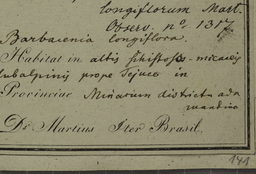 longiflorum Mart.
Observ. no. 1317
Barbacenia longiflora.
Habitat in altis schistoso-micaceis
subalpinis prope Tejuco in
Provinciae Minarum districtu ada
mantino
Dr Martius Iter Brasil.
141